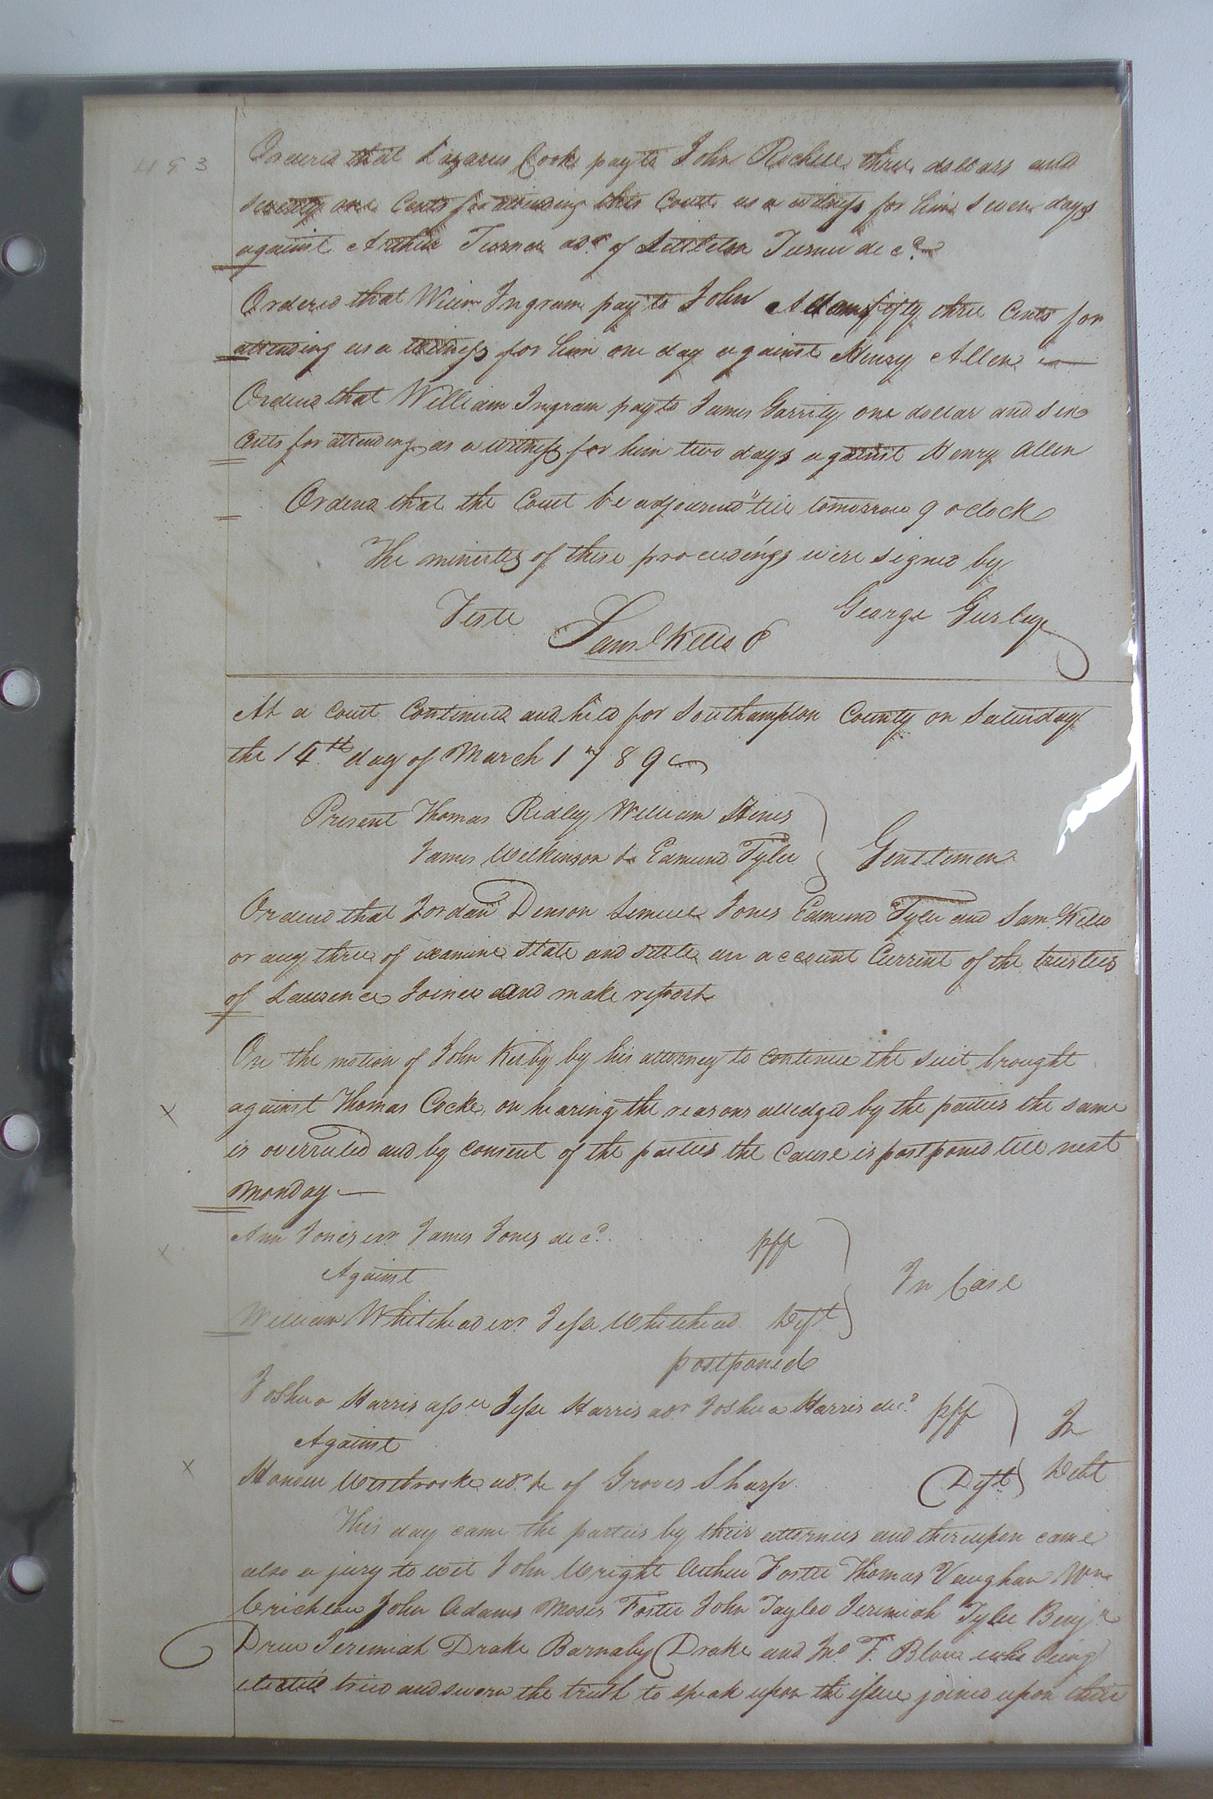 493
Ordered that Lazarus Cook pay to John Rochell three dollars and
seventy one Cents for attending this Court as a witness for him seven days
against Arthur Turner adr. of Littleton Turner decd.
Ordered that Willm Ingram pay to John Adams fifty three Cents for
attending as a witness for him one day against Henry Allen
Ordered that William Ingram pay to James Garrity one dollar and six
Cents for attending as a witness for him two days against Henry Allen
Ordered that the Court be adjourned till tomorrow 9 oClock
The minutes of these proceedings were signed by
Teste Saml Kello C George Gurley
At a Court Continued and held for Southampton County on Saturday
the 14th day of March 1789
Present Thomas Ridley William Hines
James Wilkinson & Edmund Tyler Gentlemen
Ordered that Jordan Denson Lemuel Jones Edmund Tyler and Sam. Kello
or any three of examine State and settle an account Current of the trustees
of Lawrence Joiner and make report
On the motion of John Kirby by his attorney to continue the suit brought
against Thomas Cocke, on hearing the reasons alledged by the parties the same
is overruled and by consent of the parties the Cause is postponed till next
Monday
Ann Jones exr. James Jones decd. plf
Against In Case
William Whitehead exr. Jesse Whitehead Deft
postponed
Joshua Harris assee Jesse Harris adr Joshua Harris decd. plf In
Against
Westbrook adr. &c of Groves Sharp. Deft Debt
This day came the parties by their attornies and thereupon came
also a jury to wit John Wright Arthur Foster Thomas Vaughan Wm
Crichlow John Adams Moses Foster John Taylor Jeremiah Tyler Benja
Drew Jeremiah Drake Barnaby Drake and Jno F. Blow who being
elected tried and sworn the truth to speak upon the issue joined upon their